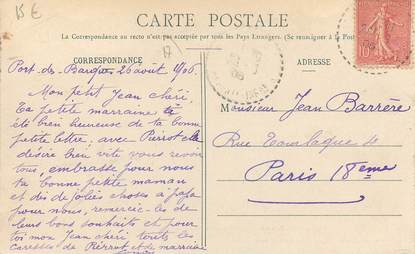 15 €
CARTE POSTALE
La Correspondance au recto n'est pas acceptée par tous les Pays Etrangers. (Se renseigner à la Poste
CORRESPONDANCE
17
ADRESSE
Port-des-Barques 26 août 1906
Mon petit Jean chéri,
Ta petite marraine a
été bien heureuse de ta bonne
petite lettre; avec Pierrot elle
désire bien vite vous revoir
tous, embrasse pour nous
ta bonne petite maman
et dis de jolies choses à papa
pour nous, remercie-les de
leurs bons souhaits et pour
toi mon Jean chéri toutes les
caresses de Pierrot et de marraine
Monsieur Jean Barrère
Rue Tourlaque
Paris 18ème